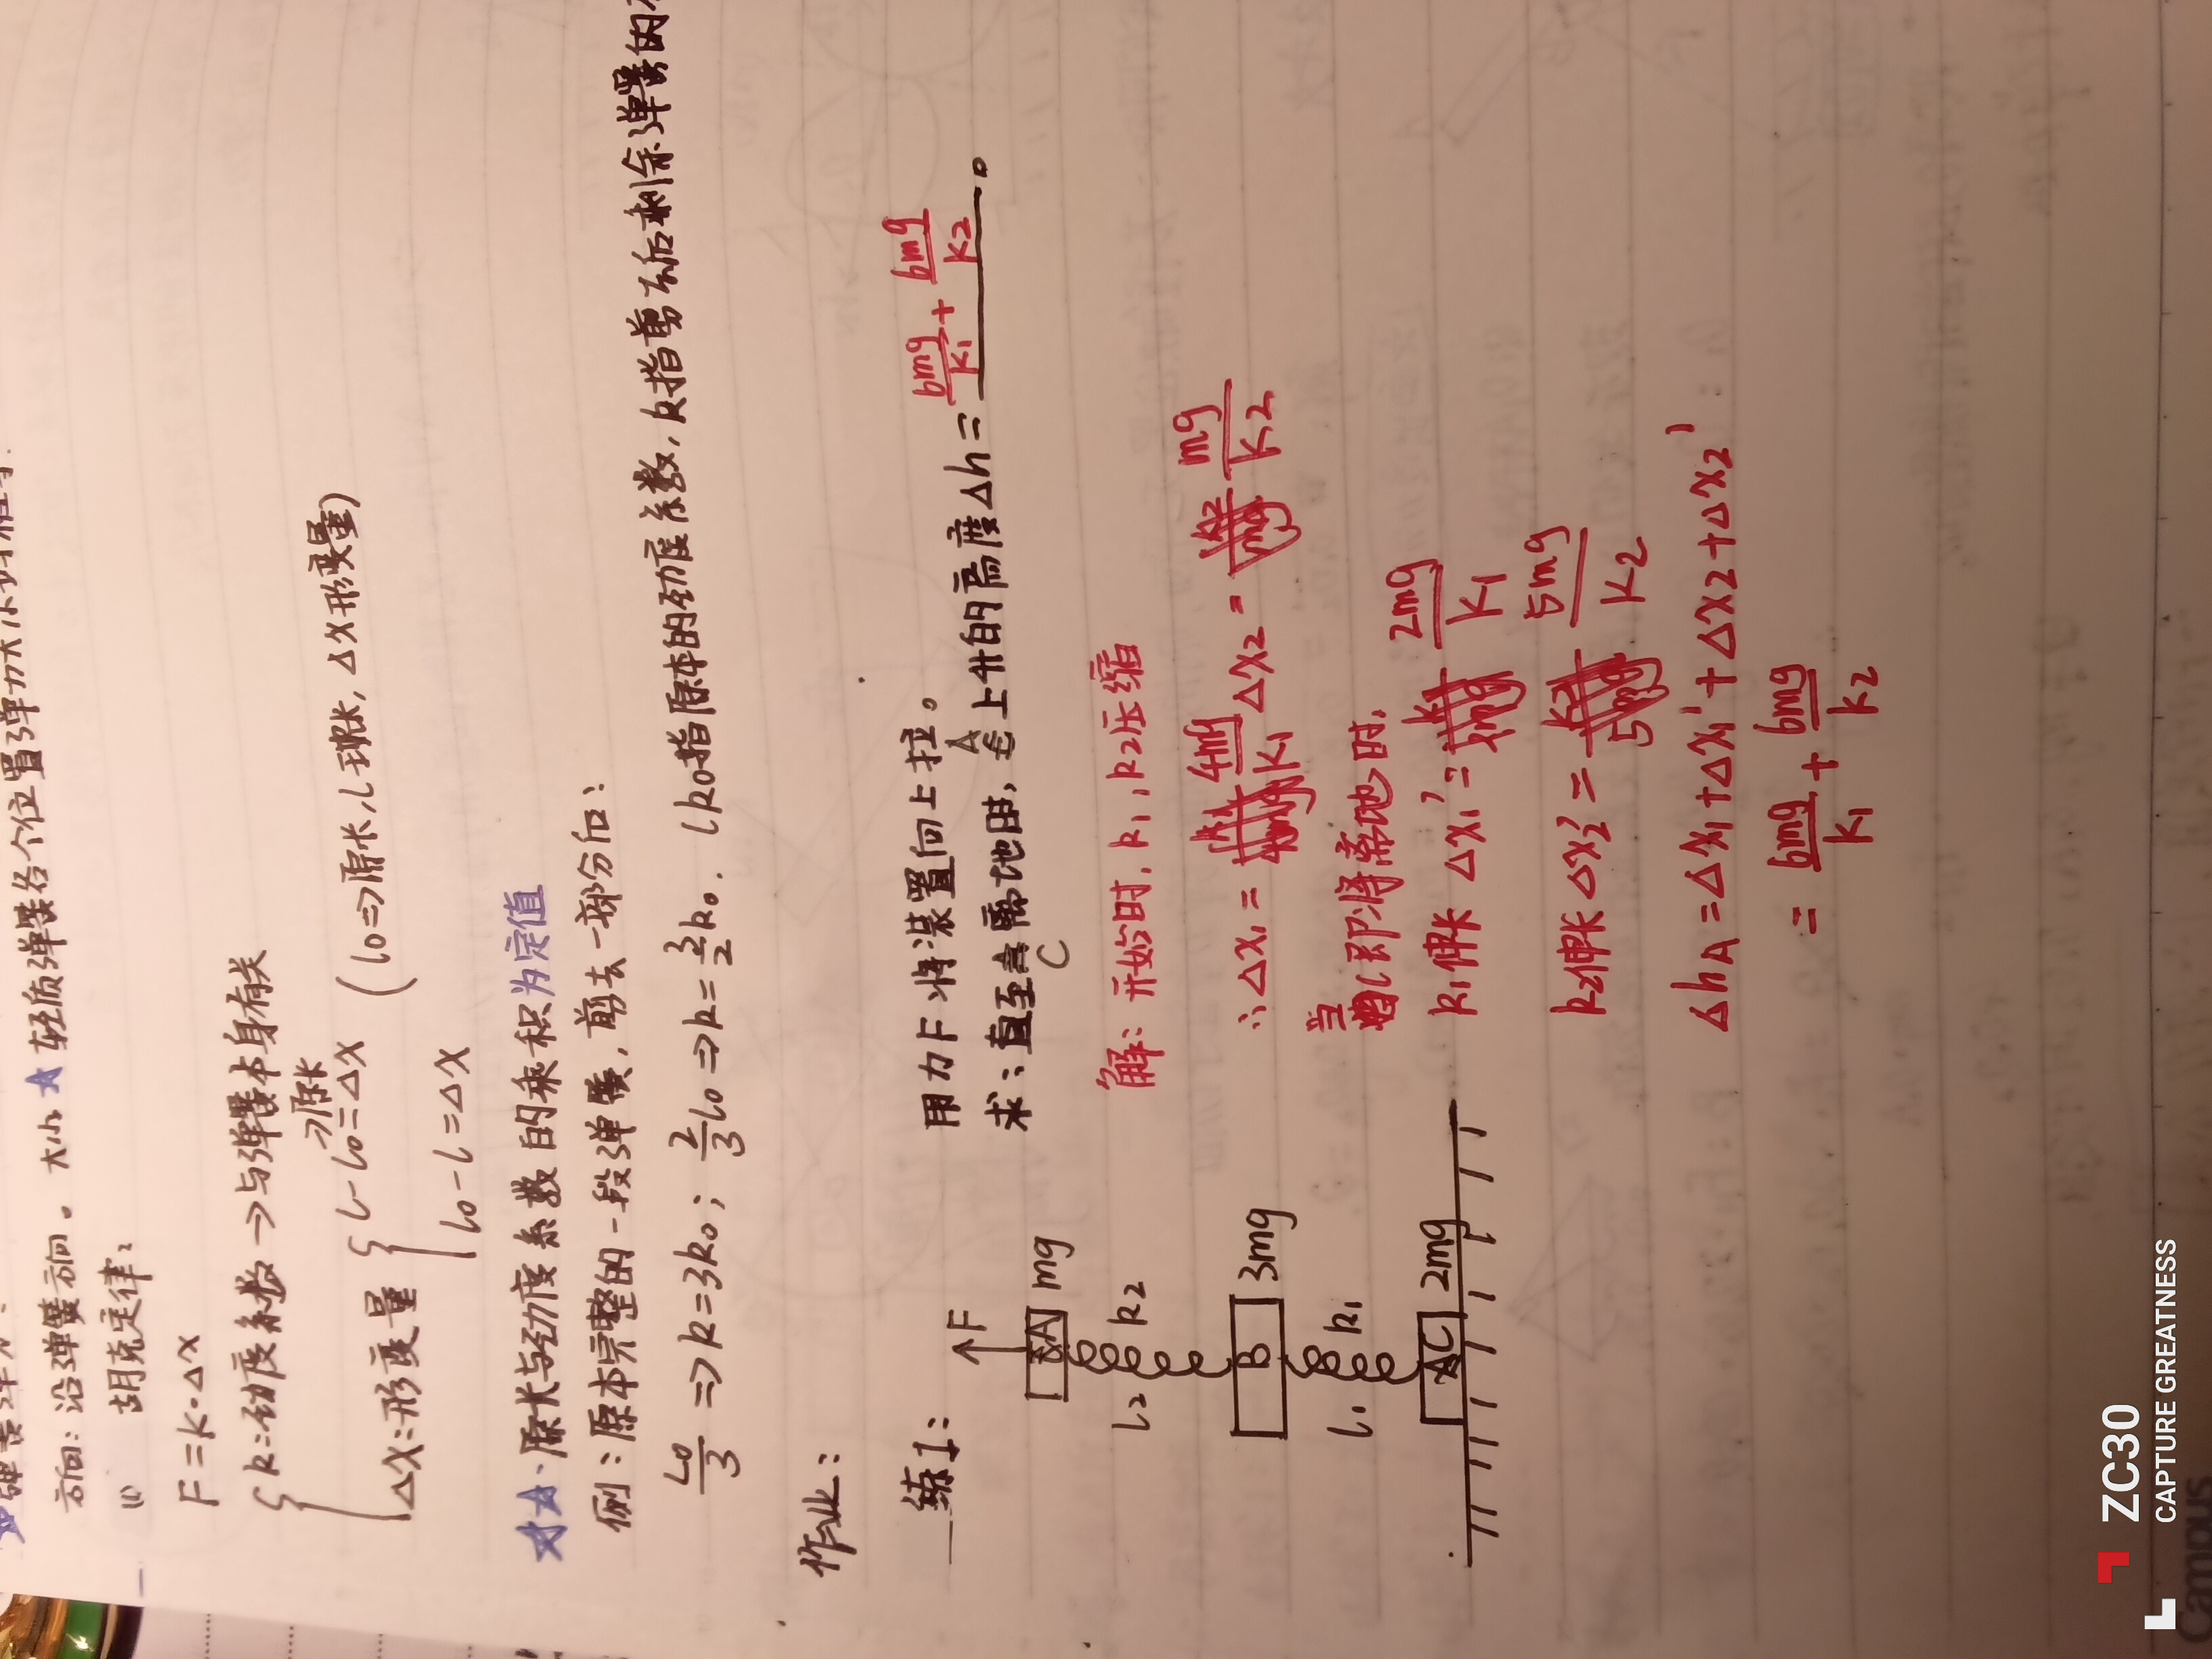 方向：沿弹簧方向。大小 ★ 轻质弹簧各个位置弹力大小
(1) 胡克定律：
F = k·Δx
k：劲度系数 → 与弹簧本身有关
Δx：形变量
→原长
l - l0 = Δx
(l0 ⇒ 原长, l 现长, Δx 形变量)
l0 - l = Δx
原长与劲度系数的乘积为定值
例：原本完整的一段弹簧，剪去一部分后：
L0/3 ⇒ k = 3k0； 2/3 l0 ⇒ k = 3/2 k0. (k0指原本的劲度系数, k指剪后剩余弹簧的
作业：
练1：
用力F将装置向上拉。
求：直至C离地时，A上升的高度Δh = 6mg/k1 + 6mg/k2 。
F
A mg
l2 k2
B 3mg
l1 k1
C 2mg
解：开始时, k1, k2压缩
∴ Δx1 = 4mg/k1 Δx2 = mg/k2
当C即将离地时,
k1伸长 Δx1' = 2mg/k1
k2伸长 Δx2' = 5mg/k2
ΔhA = Δx1 + Δx1' + Δx2 + Δx2'
= 6mg/k1 + 6mg/k2
ZC30
CAPTURE GREATNESS
Campus